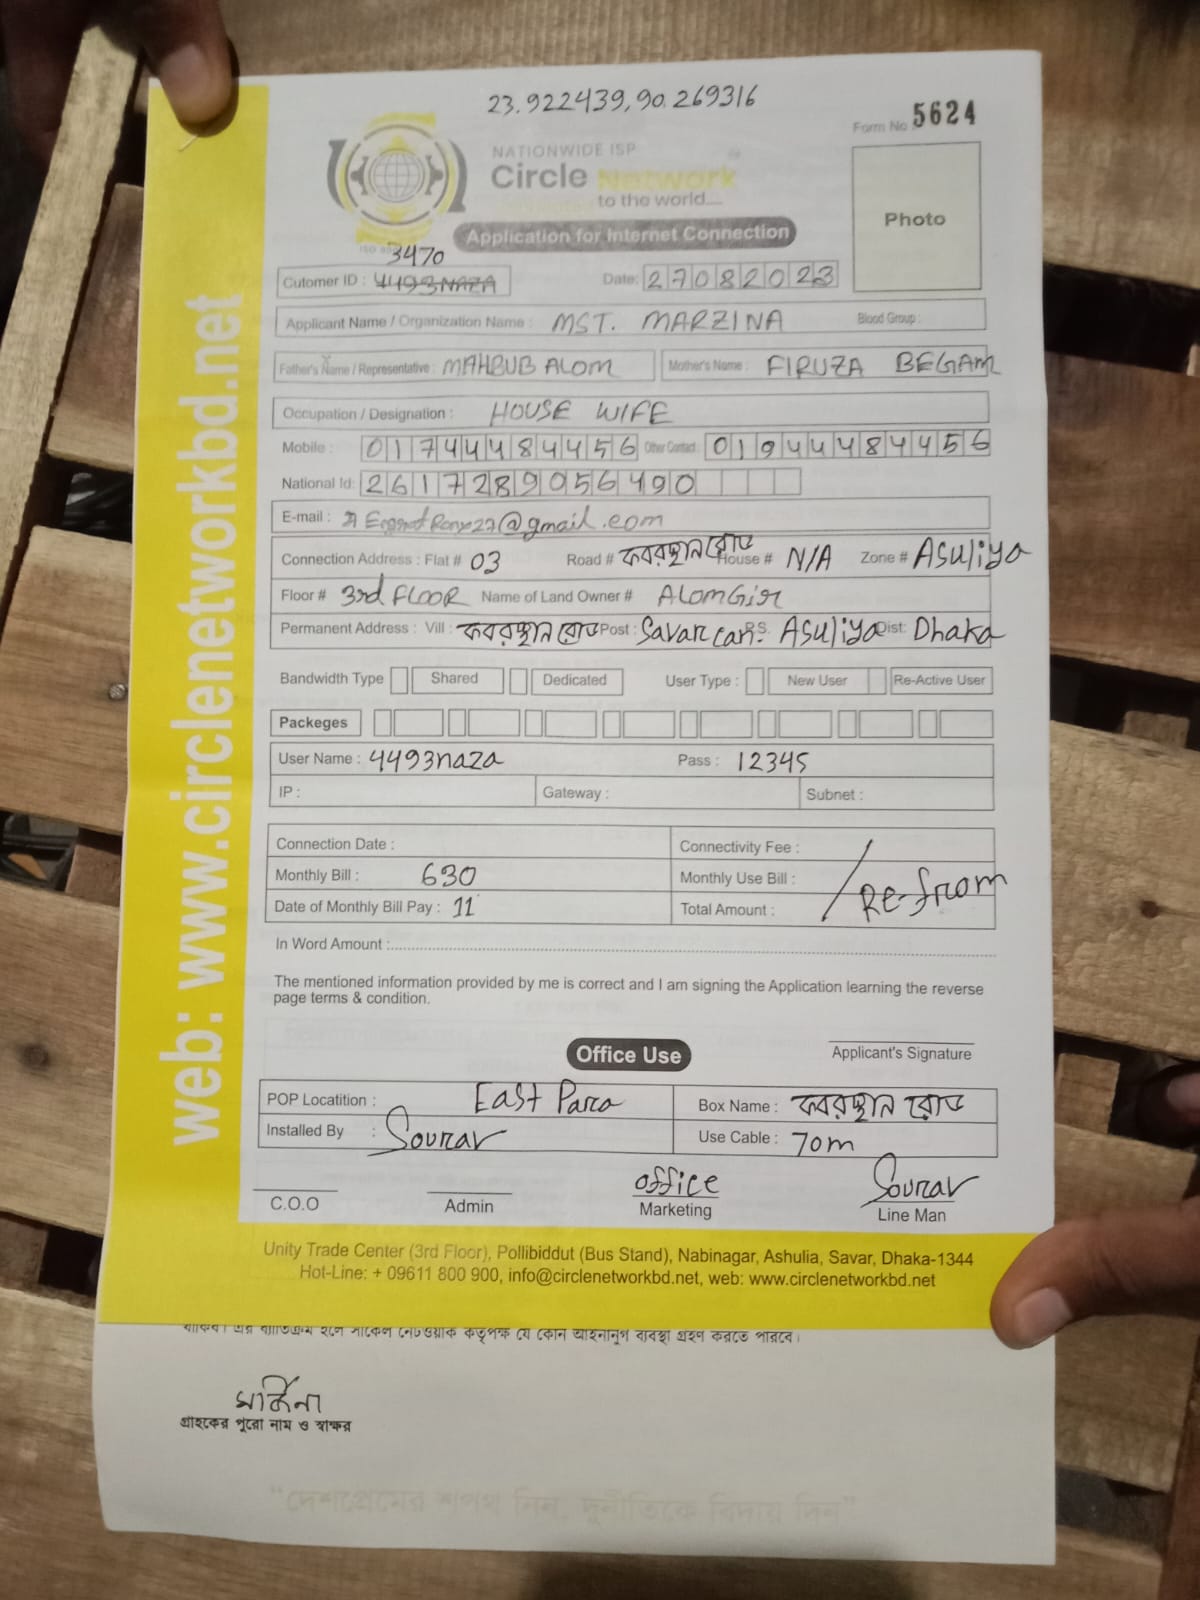 23.922439, 90.269316
Form No 5624
NATIONWIDE ISP
Circle Network
to the world....
Photo
Application for Internet Connection
3470
Cutomer ID : 4493NAZA Date: 27082023
Applicant Name / Organization Name : MST. MARZINA Blood Group :
Father's Name / Representative : MAHBUB ALOM Mother's Name : FIRUZA BEGAM
Occupation / Designation : HOUSE WIFE
Mobile : 01744484456 Other Contact 01944484456
National Id: 2617289056490
E-mail : @gmail.com
Connection Address : Flat # 03 Road # কবরস্থান রোড House # N/A Zone # Asuliya
Floor # 3rd FLOOR Name of Land Owner # ALOMGir
Permanent Address : Vill : কবরস্থান রোড Post : Savar can. P.S. Asuliya Dist: Dhaka
Bandwidth Type Shared Dedicated User Type : New User Re-Active User
Packeges
User Name : 4493naza Pass : 12345
IP : Gateway : Subnet :
Connection Date : Connectivity Fee :
Monthly Bill : 630 Monthly Use Bill :
Re-from
Date of Monthly Bill Pay : 11 Total Amount :
In Word Amount :
The mentioned information provided by me is correct and I am signing the Application learning the reverse
page terms & condition.
Office Use
Applicant's Signature
POP Locatition : East Para Box Name : কবরস্থান রোড
Installed By : Sourav Use Cable : 70m
office Sourav
C.O.O Admin Marketing Line Man
Unity Trade Center (3rd Floor), Pollibiddut (Bus Stand), Nabinagar, Ashulia, Savar, Dhaka-1344
Hot-Line: + 09611 800 900, info@circlenetworkbd.net, web: www.circlenetworkbd.net
web: www.circlenetworkbd.net
থাকিব। এর ব্যতিক্রম হলে সার্কেল নেটওয়ার্ক কর্তৃপক্ষ যে কোন আইনানুগ ব্যবস্থা গ্রহণ করতে পারবে।
মর্জিনা
গ্রাহকের পুরো নাম ও স্বাক্ষর
“দেশপ্রেমের শপথ নিন, দুর্নীতিকে বিদায় দিন”